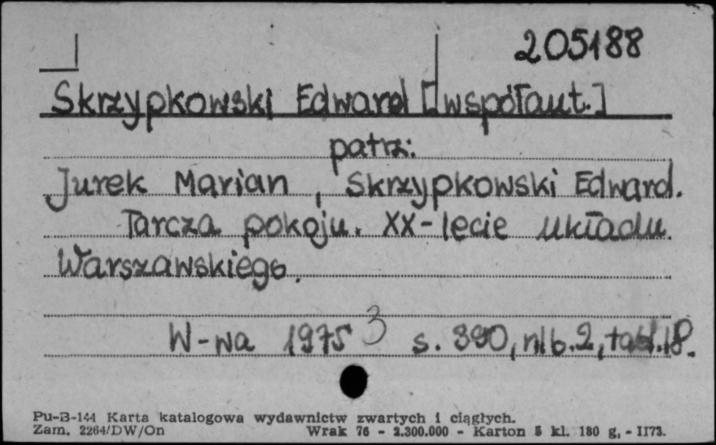 205188
Skrzypkowski Edward [współaut.]
patrz:
Jurek Marian, Skrzypkowski Edward.
Tarcza pokoju. XX-lecie układu
Warszawskiego.
W-wa 1975 3 s. 390, nlb. 2, tabl. 18.
Pu-B-144 Karta katalogowa wydawnictw zwartych i ciągłych.
Zam. 2264/DW/On Wrak 76 - 2.300.000 - Karton 5 kl. 180 g, - II73.